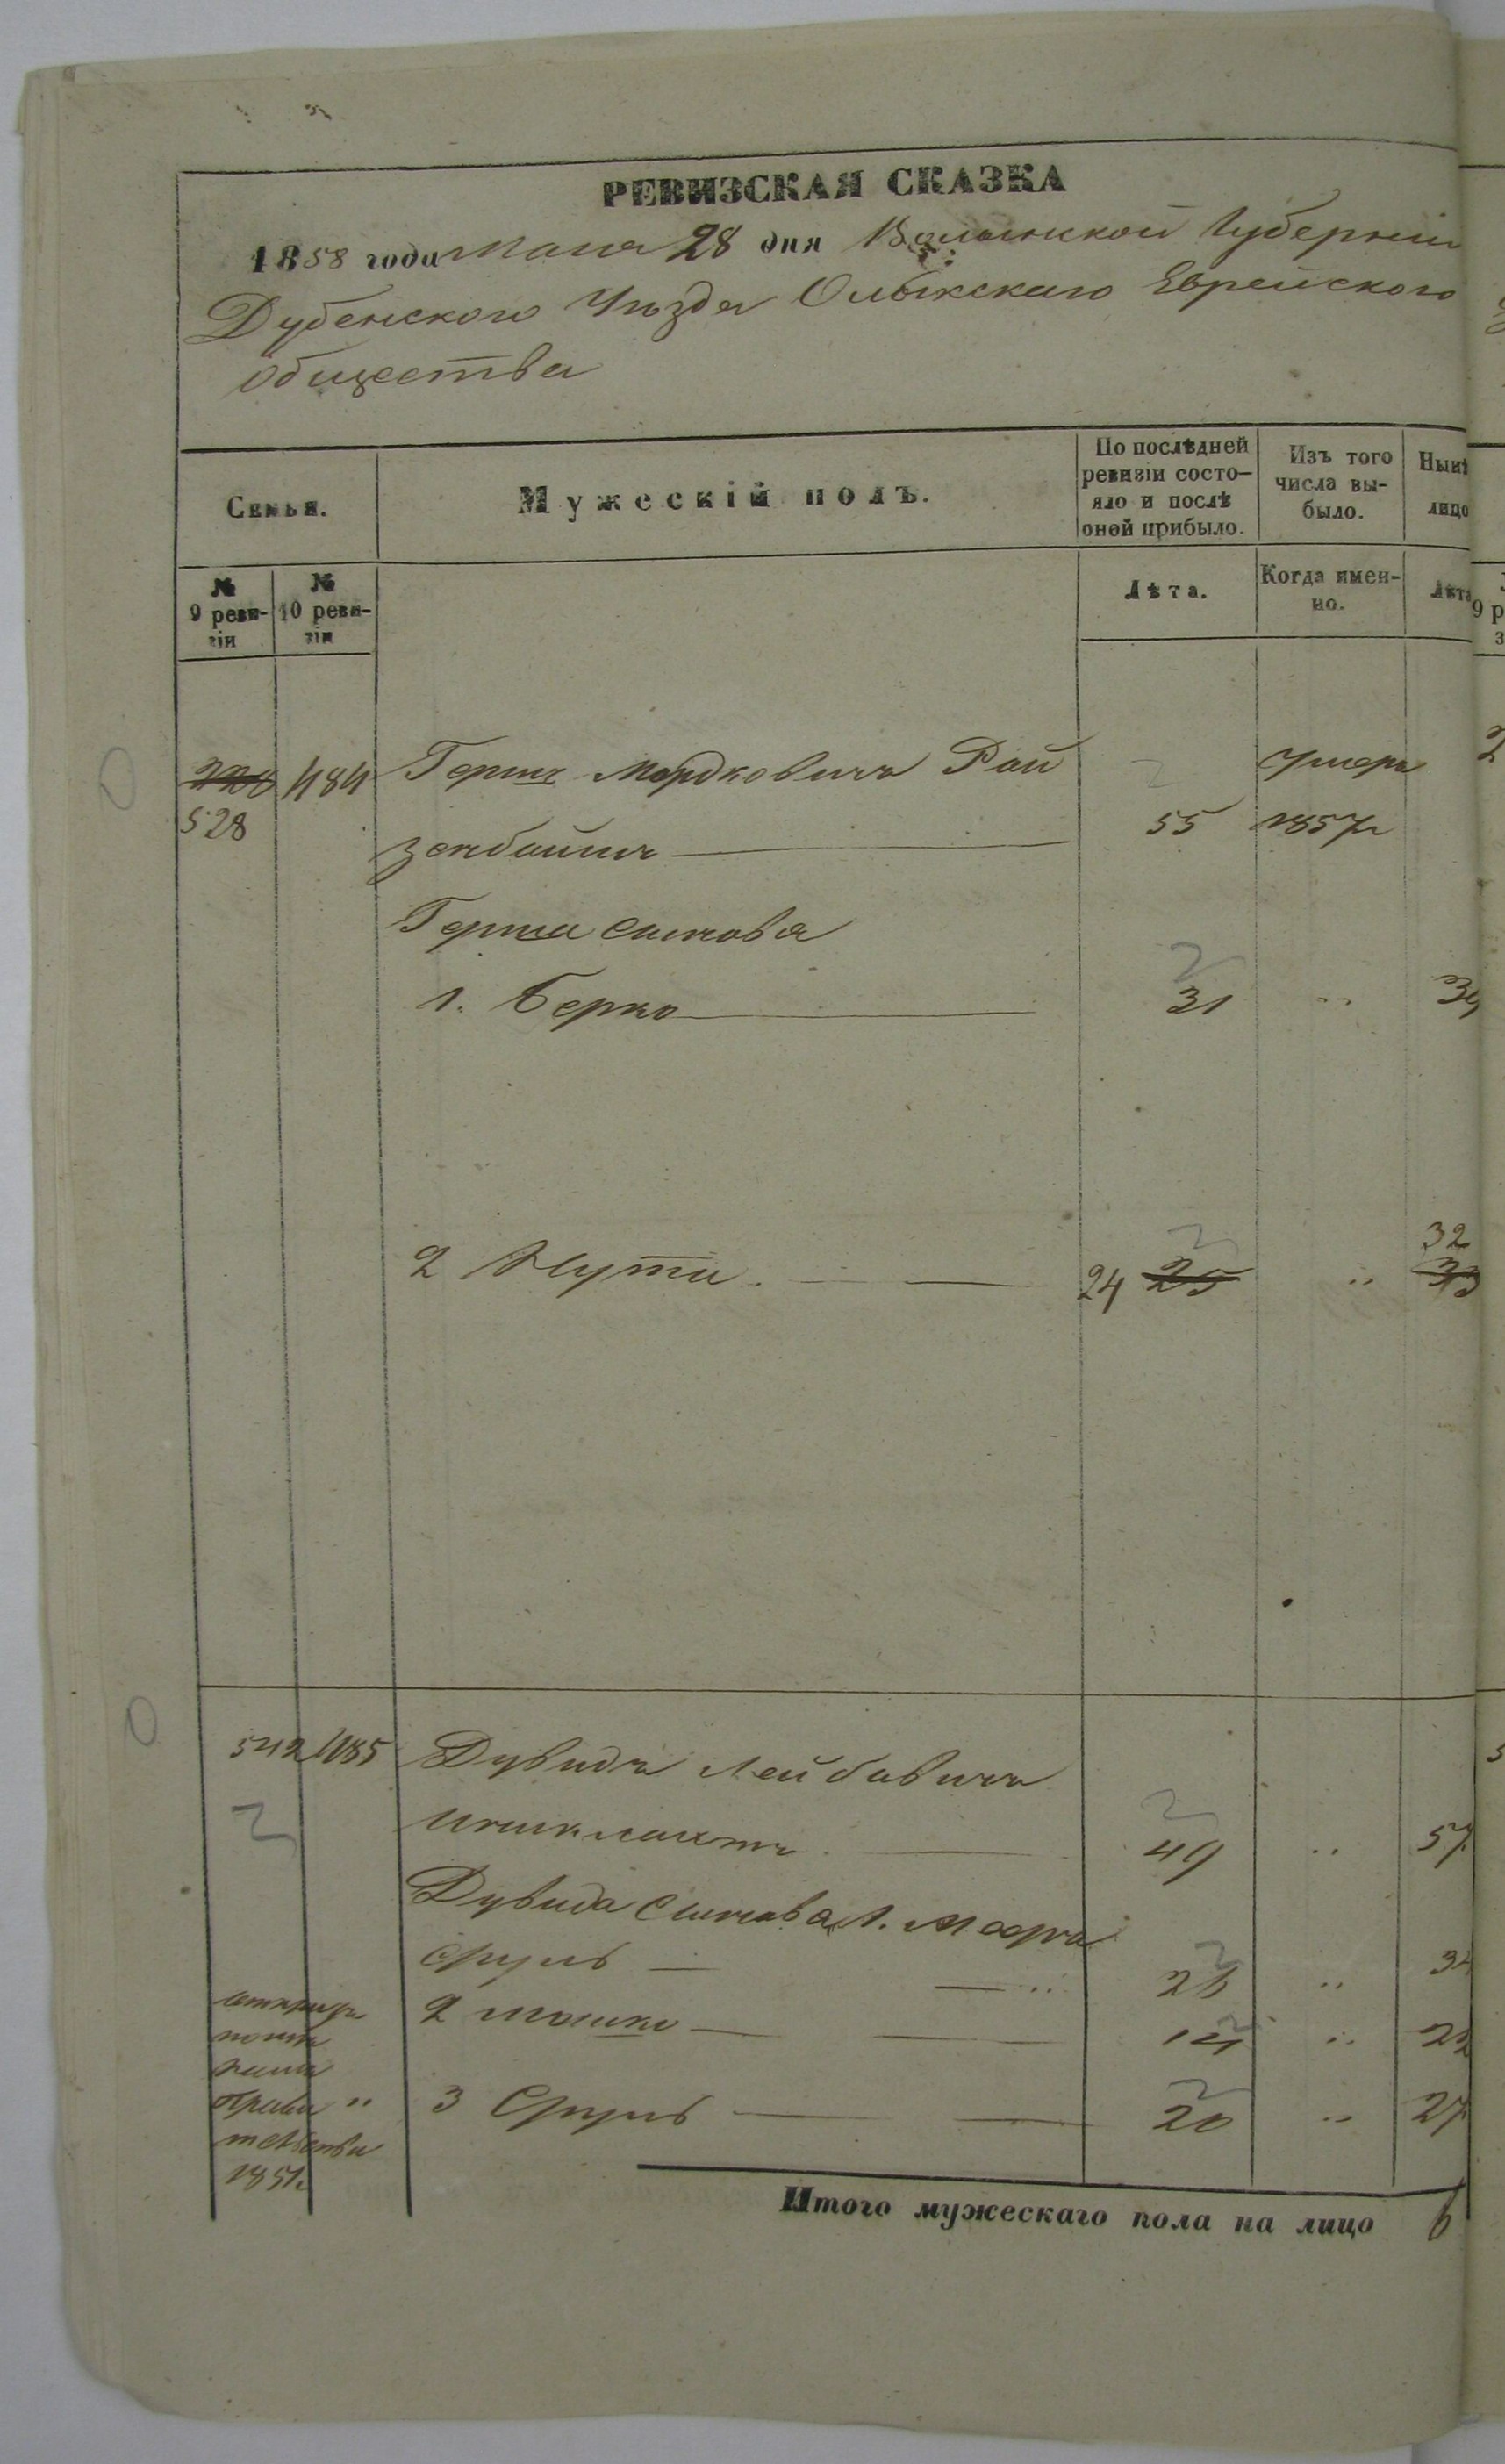 РЕВИЗСКАЯ СКАЗКА
1858 года Мая 28 дня Волынской Губерніи
Дубенского Уѣзда Олыкскаго Еврейского
общества
Семьи.
Мужескій полъ.
По послѣдней
ревизіи состо-
яло и послѣ
оной прибыло.
Изъ того
числа вы-
было.
Нынѣ
лицо
№
9 реви-
зіи
№
10 реви-
зіи
Лѣта.
Когда имен-
но.
Лѣта
484 Герш Мордковичъ Рай Умеръ
528 зенбаймъ 55 1857г
Герша сыновя
1. Берко 31 34
2 Нути 24 25 32 33
542 485 Дувидъ Лейбовичъ
49 57
Дувида сыновя 1. Мееръ
Сруль 26 34
2 Мошко 14 22
3 Сруль 20 27
1851г
Итого мужескаго пола на лицо 6